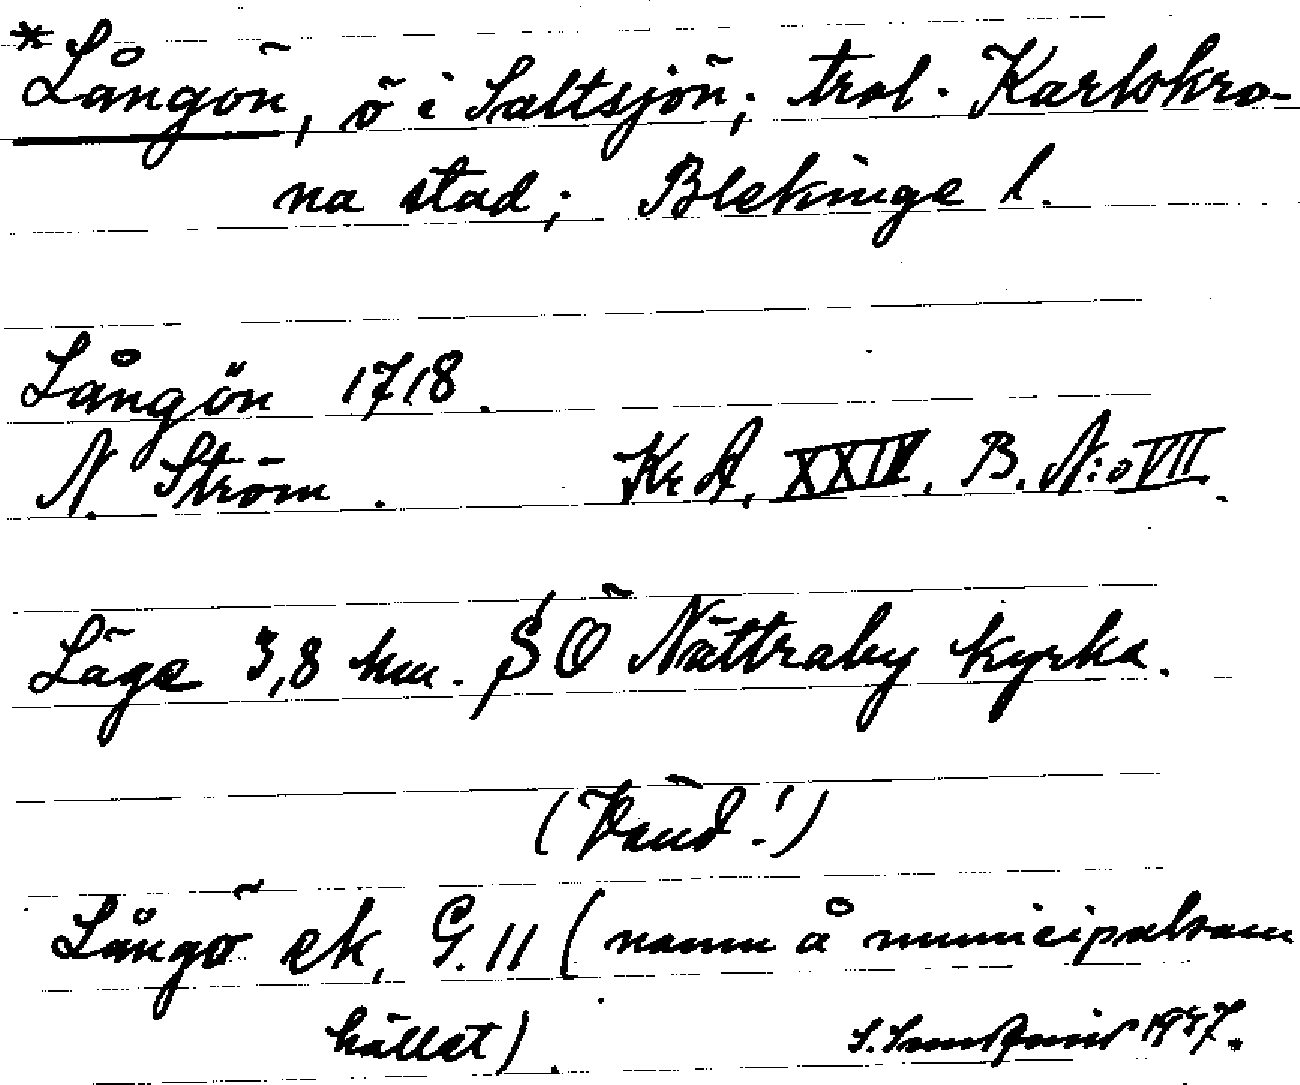 *Långön, ö i Saltsjön; trol. Karlskro-
na stad; Blekinge l.
Långön 1718.
N. Ström. Kr. A. XXIV. B. N:o VII.
Läge 3,8 km. SÖ Nättraby kyrka.
(Vänd!)
Långö ek. G. 11 (namn å municipalsam
hället). S. 1947.